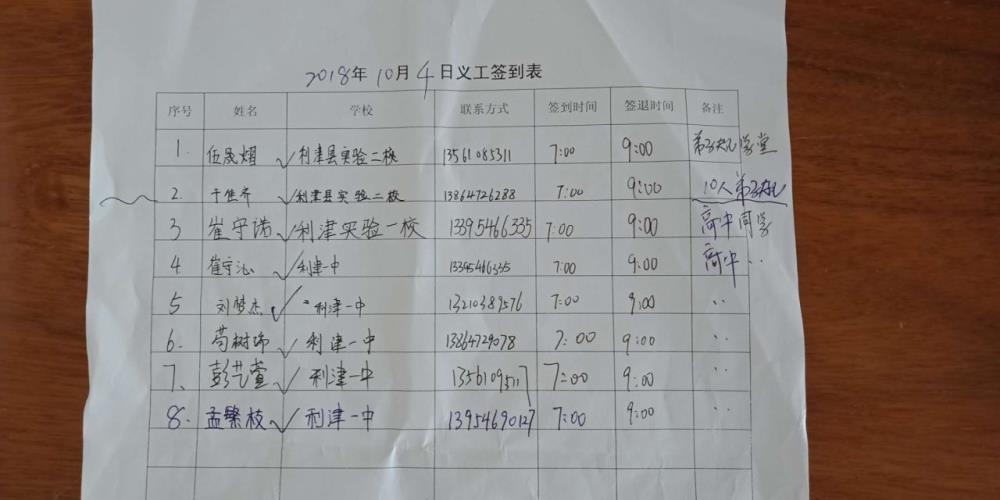 2018年10月4日义工签到表
序号 姓名 学校 联系方式 签到时间 签退时间 备注
1. 伍晟熠 利津县实验二校 13561085311 7:00 9:00 弟子规学堂
2. 于佳齐 利津县实验二校 13864726288 7:00 9:00 10人弟子规
3 崔守诺 利津实验一校 13395466335 7:00 9:00 高中同学
4 崔守沁 利津一中 13395466335 7:00 9:00 高中 ..
5 刘梦杰 利津一中 13210389576 7:00 9:00 ..
6. 苟树瑞 利津一中 13864729078 7:00 9:00 ..
7. 彭艺萱 利津一中 13561095117 7:00 9:00 ..
8. 孟繁枝 利津一中 13954690127 7:00 9:00 ..